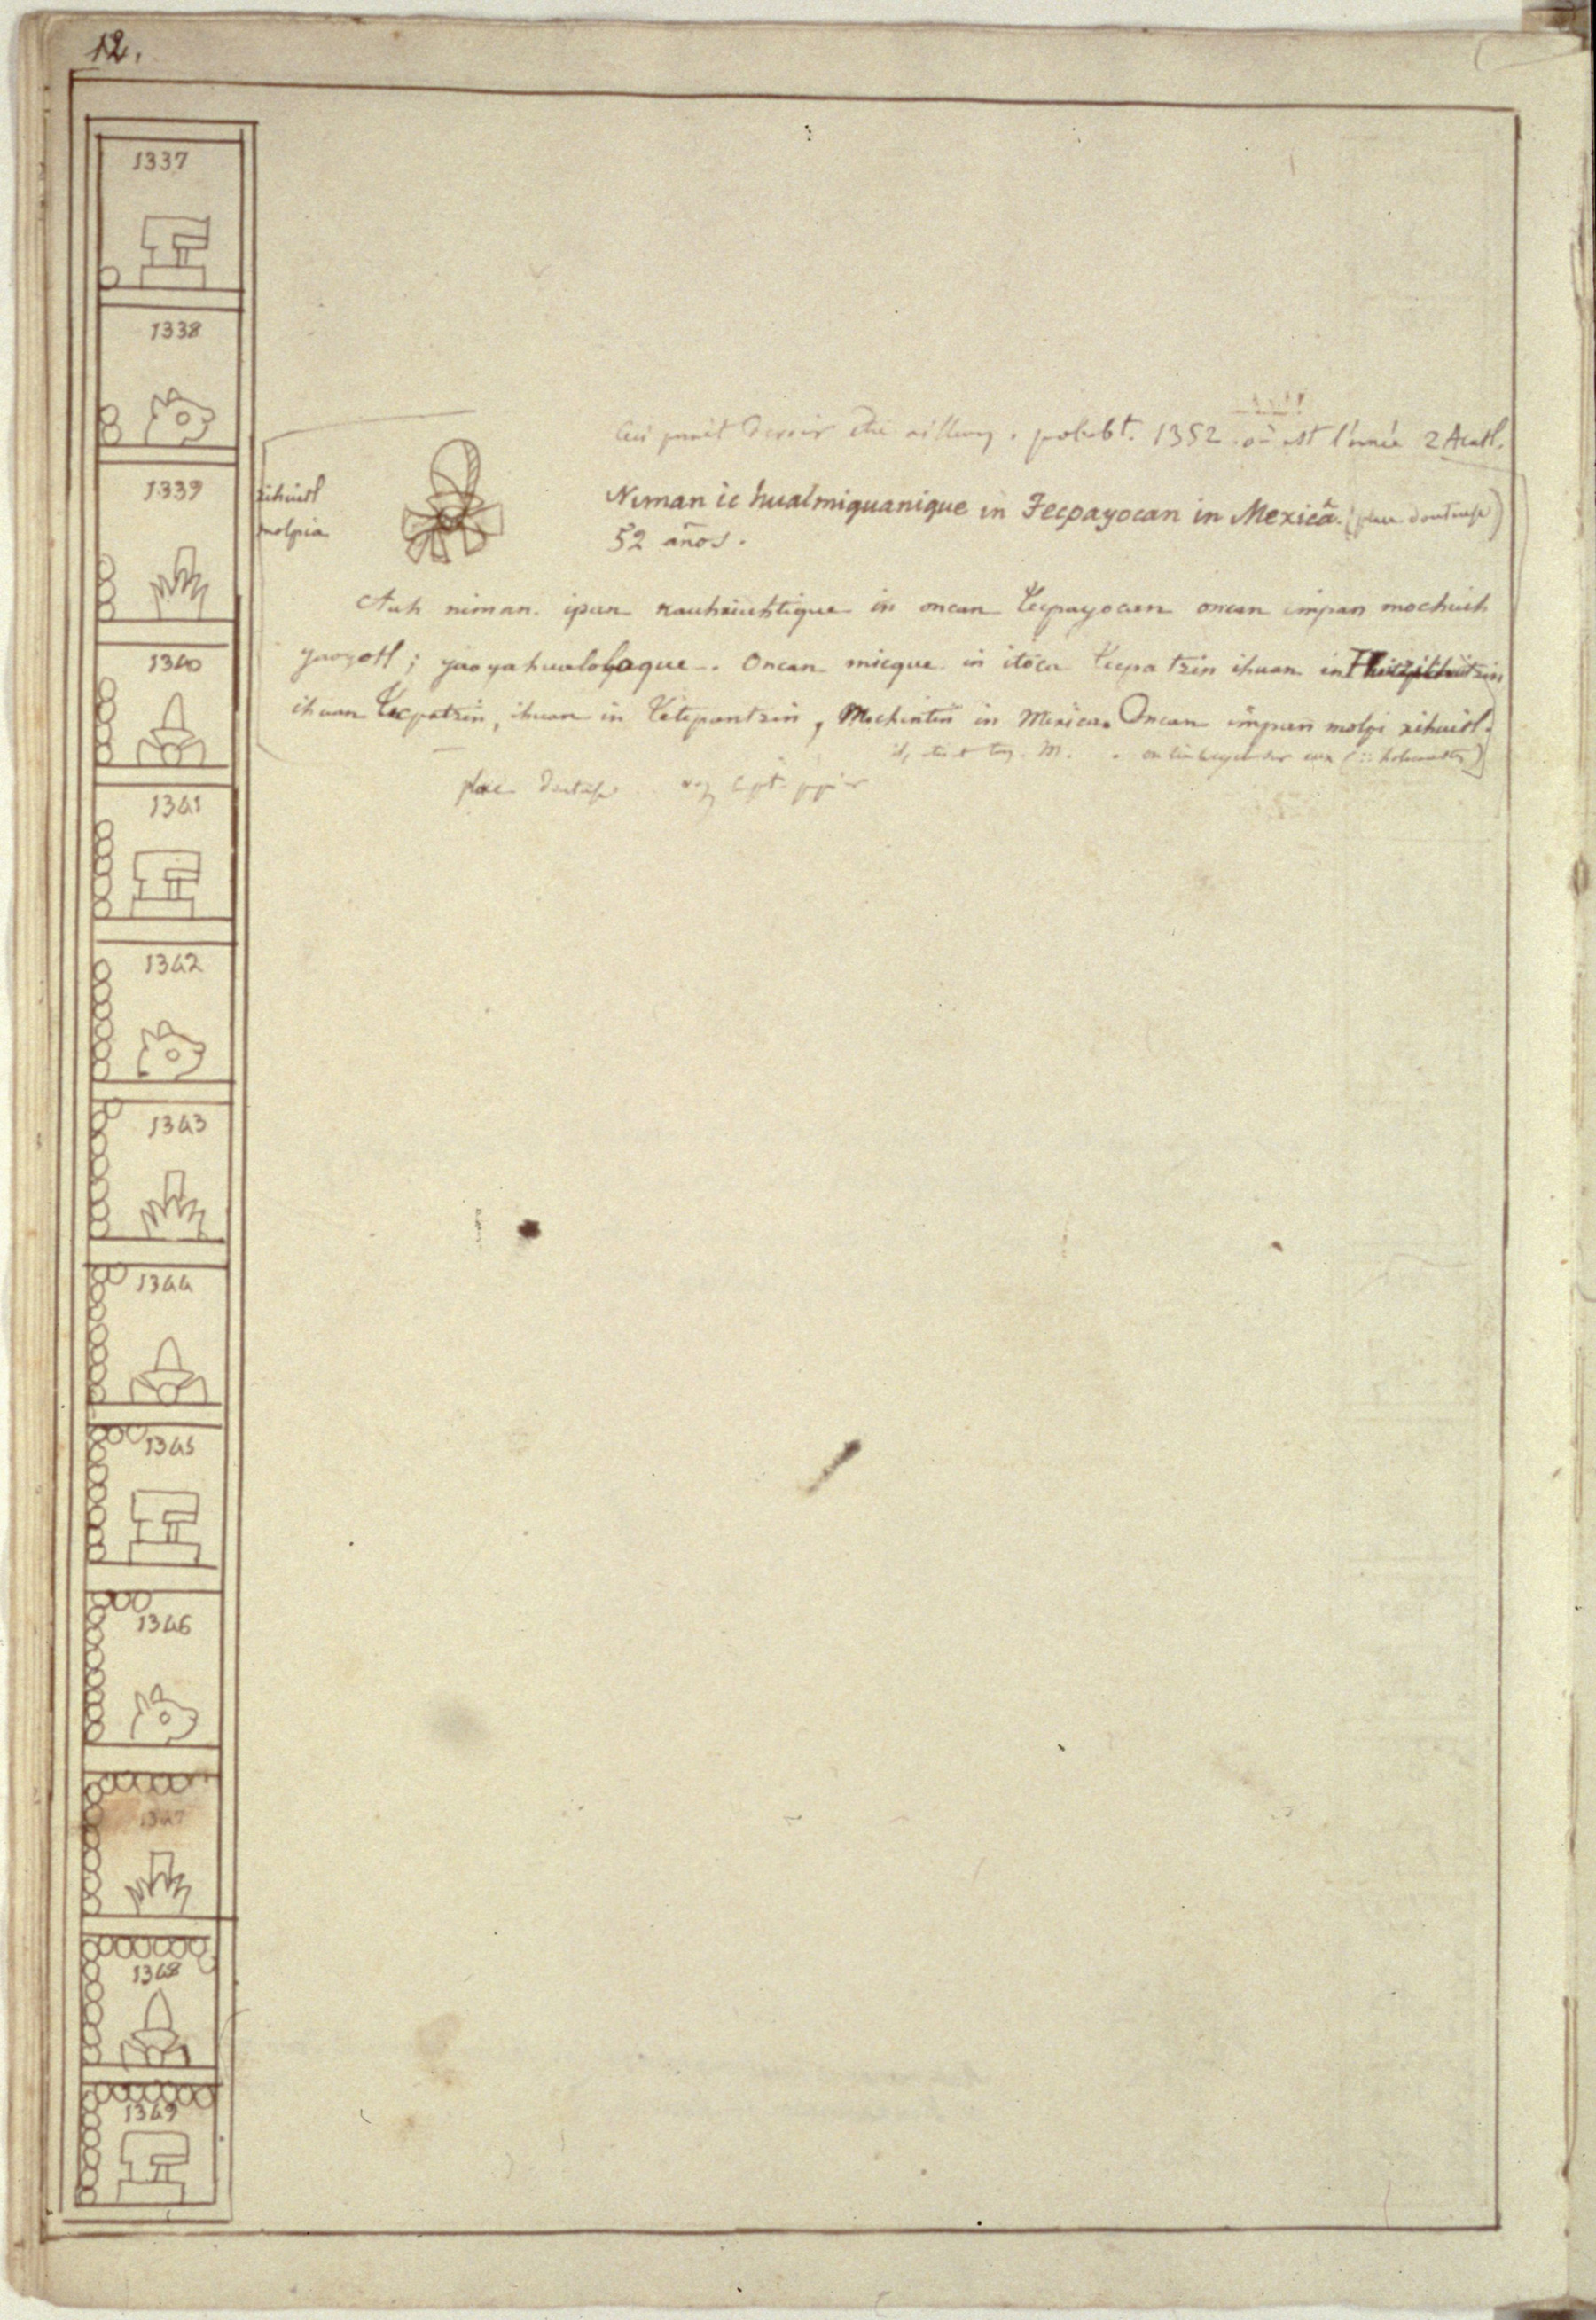 12.
1337
1338
1339
1340
1341
1342
1343
1344
1345
1346
1347
1348
1349
xihuitl
molpia
Ceci parait devoir être ailleurs. probabt. 1352 où est l'année 2 Acatl.
Niman ic hualmiquanique in Tecpayocan in Mexicã. (place douteuse)
52 años.
Auh niman ipan nauhxiuhtique in oncan Tecpayocan oncan impan mochiuh
yaoyotl; yaoyahualoloque. Oncan micque in itoca Tecpatzin ihuan in Huitzilihuitzin
ihuan Tecpatzin, ihuan in Tetepantzin, Mochintin in Mexica. Oncan impan molpi xihuitl.
place douteuse